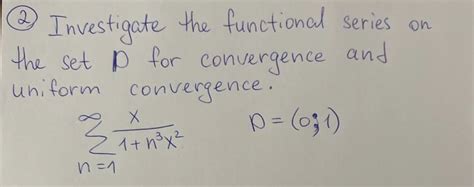 ② Investigate the functional series on
the set D for convergence and
uniform convergence.
∞
∑ x / (1+n³x²)    D = (0;1)
n=1